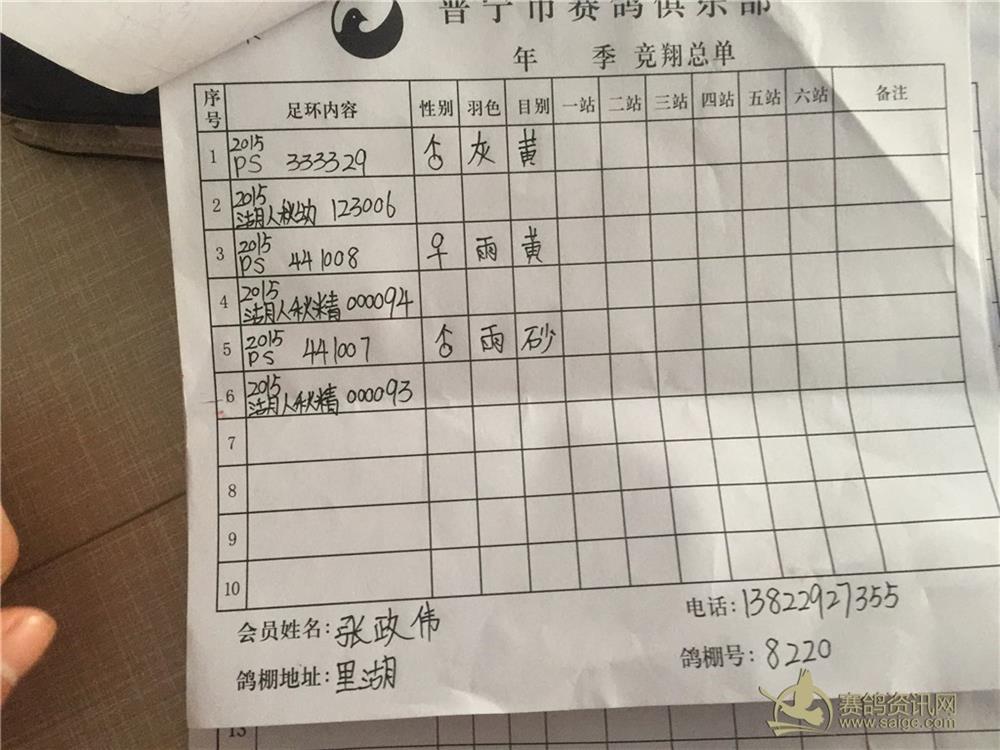 普宁市赛鸽俱乐部
年 季 竞翔总单
序号 足环内容 性别 羽色 目别 一站 二站 三站 四站 五站 六站 备注
1 2015
PS 333329 灰 黄
2 2015
湖人秋幼 123006
3 2015
PS 441008 ♀ 雨 黄
4 2015
湖人秋精 000094
5 2015
PS 441007 雨 砂
6 2015
湖人秋精 000093
7
8
9
10
会员姓名:张政伟 电话:13822927355
鸽棚地址:里湖 鸽棚号:8220
13
赛鸽资讯网
www.saige.com